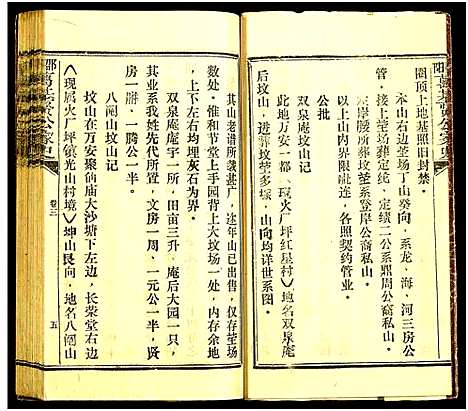 圈顶上地基照旧封禁。
本山右边茔场丁山癸向，系龙、海、河三房公
管。
接上茔场葬定，定续二公系鼎周公裔私山。
岸腰所葬坟茔系登岸公裔私山。
以上山内界限毗连，各照契约管业。
公批
双泉庵坟山记
此地万安一都、（现火厂坪红星村）地名双泉庵
后坟山，进葬坟茔多塚，山向均详世系图。
其山老谱所载 近年山已出售，仅存茔场
数处。惟和节堂上手园背上大坟场一处，内存余地
，上下左右均埋灰石为界。
双泉庵庵宇一所，田亩三升，庵后大园一只，
其业系我姓先代所置，文房一周、一元公一半，贤
房一腾、一腾公一半。
八阁山坟山记
坟山在万安聚仙庙大沙塘下左边，长荣堂右边
（现属火厂坪镇光山村境）坤山艮向，地名八阁山
卷三
五